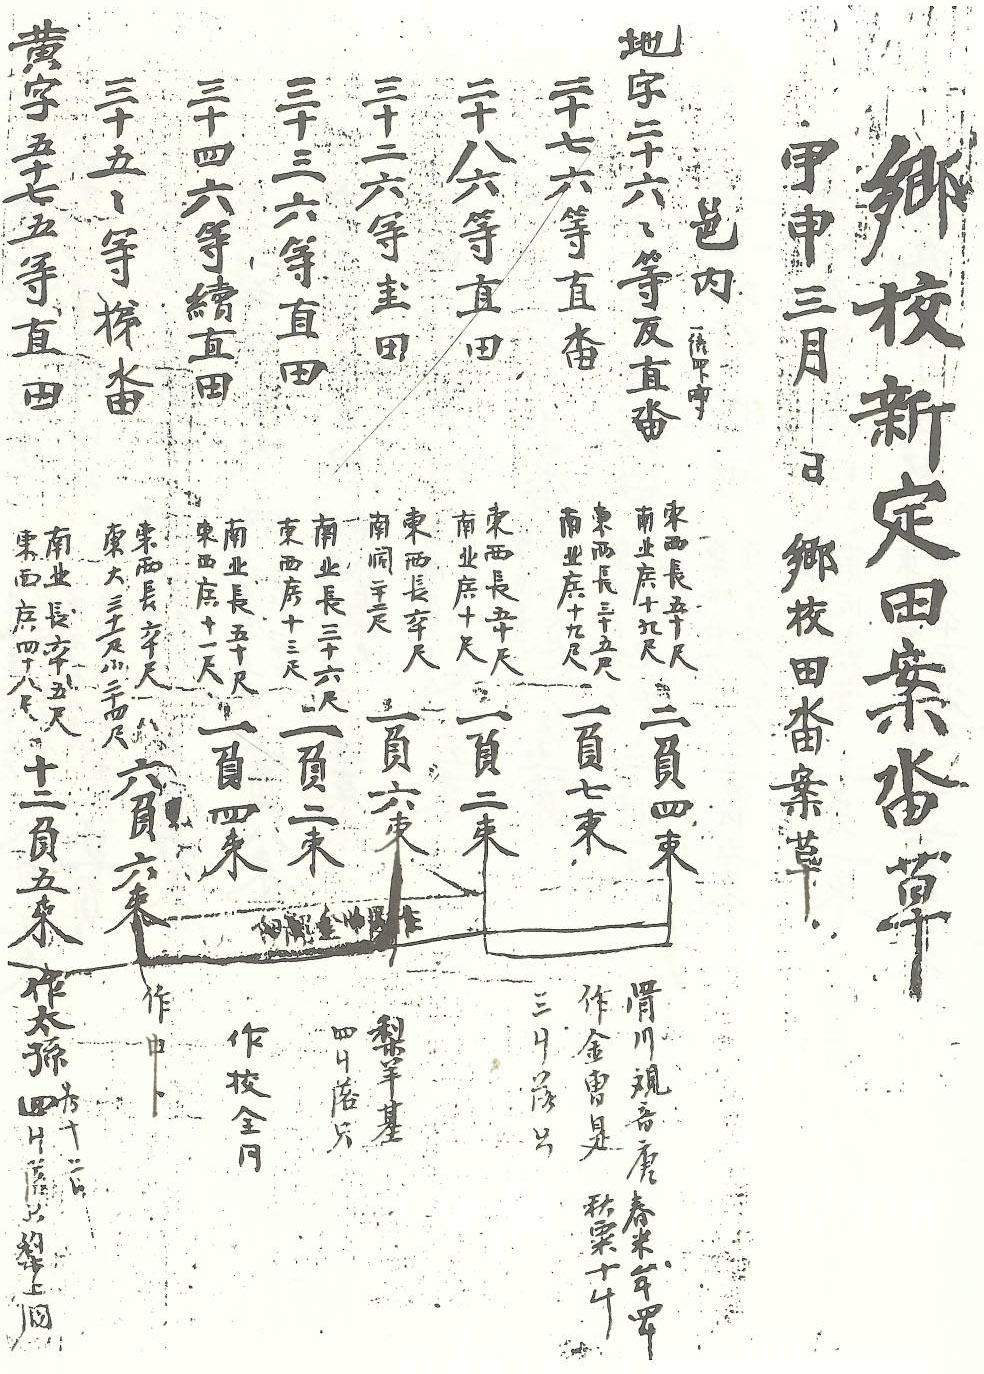 鄕校新定田案畓草
甲申三月 日 鄕校田畓案草
邑內
地字二十六〻等反直畓 東西長五十尺 南北广十九尺 二負四束
二十七六等直畓 東西長三十五尺 南北广十九尺 一負七束
二十八六等直田 東西長五十尺 南北广十尺 一負二束
三十二六等圭田 東西長六十尺 南闊二十二尺 一負六束
三十三六等直田 南北長三十六尺 東西广十三尺 一負二束
三十四六等續直田 南北長五十尺 東西广十一尺 一負四束
三十五〻等梯畓 東西長六十尺 東大三十二尺小二十四尺 六負六束
黃字五十七五等直田 南北長六十五尺 東西广四十八尺 十二負五束
春米
作金
秋粟十斗
三斗落
梨羊基
四斗落
作校仝同
作申卜
作太孫
四斗落